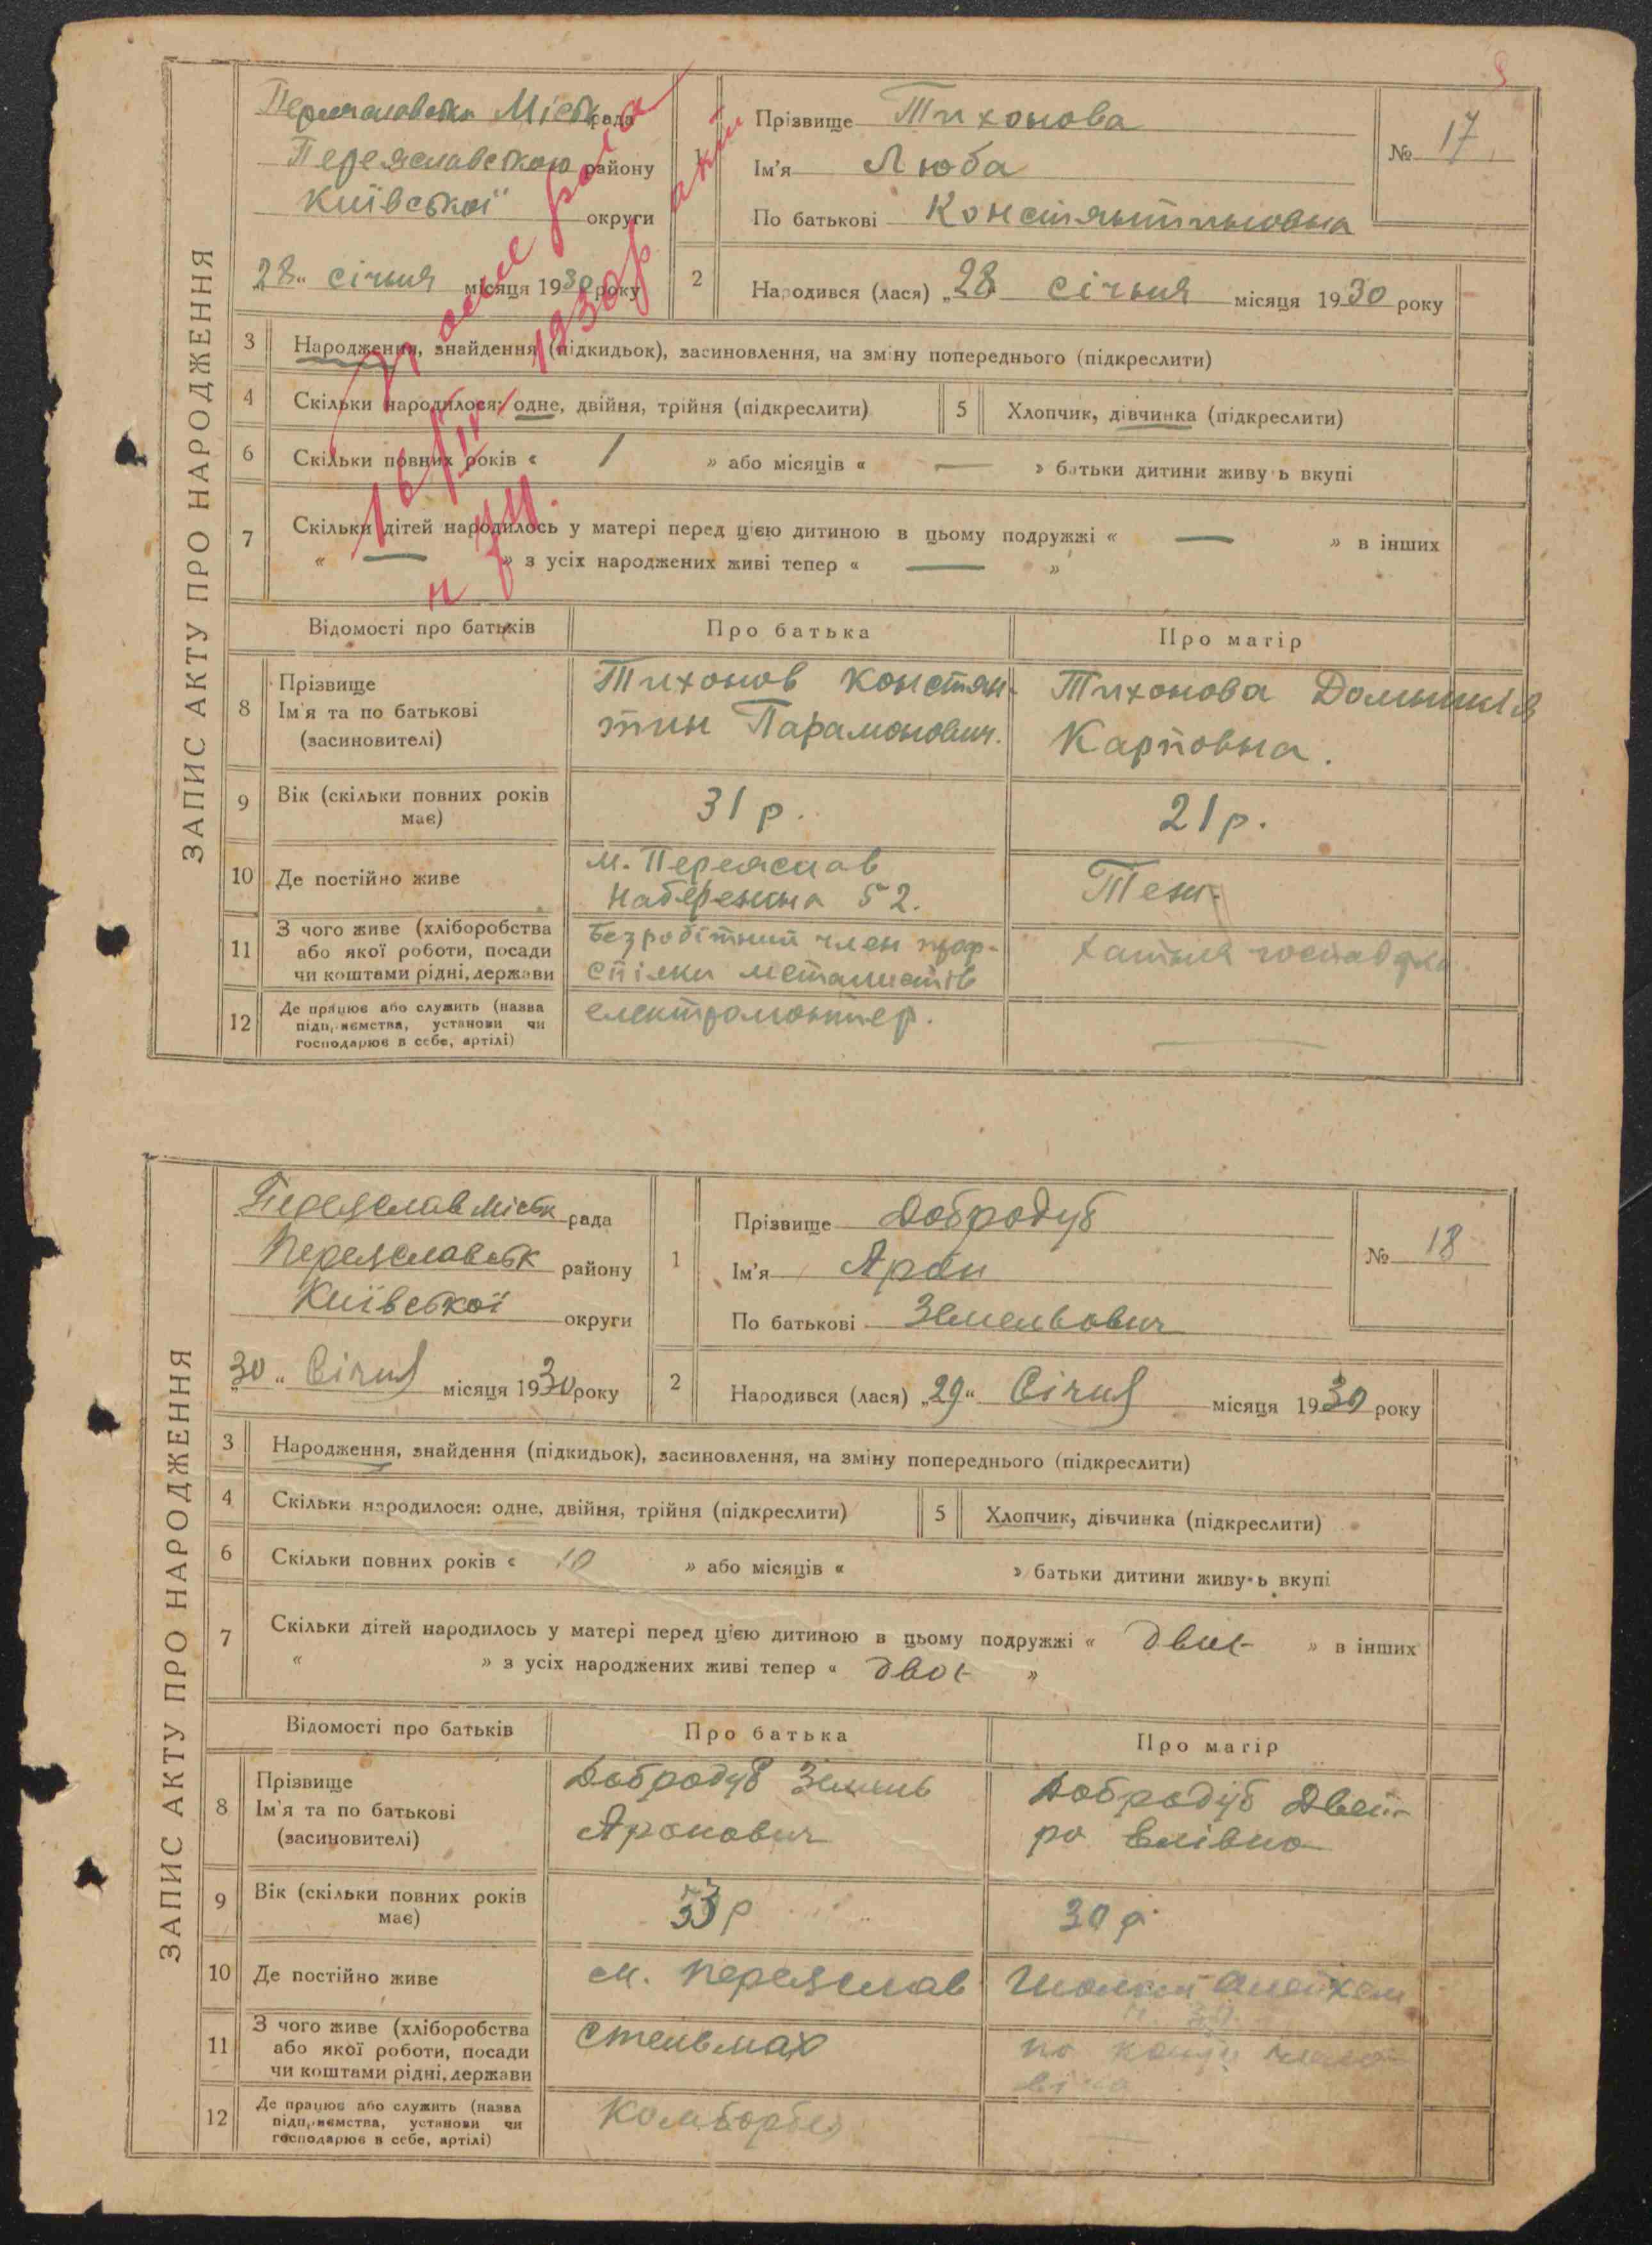 ЗАПИС АКТУ ПРО НАРОДЖЕННЯ
Міськ рада
Переяславською району
Київської округи
„28“ січня місяця 1930 року
1
Прізвище Тихонова
Ім'я Люба
По батькові Констянтиновна
№ 17
2
Народився (лася) „28 січня місяця 1930 року
3 Народження, знайдення (підкидьок), засиновлення, на зміну попереднього (підкреслити)
4 Скільки народилося: одне, двійня, трійня (підкреслити)
5 Хлопчик, дівчинка (підкреслити)
6 Скільки повних років « 1 » або місяців « — » батьки дитини живуть вкупі
7 Скільки дітей народилось у матері перед цією дитиною в цьому подружжі « — » в інших
« — » з усіх народжених живі тепер « — »
16/IV 1930р
Відомості про батьків
Про батька
Про матір
8 Прізвище
Ім'я та по батькові
(засиновителі)
Тихонов Констян-
тин Парамонович.
Тихонова Домникія
Карповна.
9 Вік (скільки повних років
має)
31 р.
21 р.
10 Де постійно живе
м. Переяслав
Набережна 52.
Теж
11 З чого живе (хліборобства
або якої роботи, посади
чи коштами рідні, держави
Безробітний член проф-
спілки металистів
хатня господарка
12 Де працює або служить (назва
підприємства, установи чи
господарює в себе, артілі)
електромонтер.
—
ЗАПИС АКТУ ПРО НАРОДЖЕННЯ
Переяслав міськ рада
Переяславськ району
Київської округи
„30“ Січня місяця 1930 року
1
Прізвище Добродуб
Ім'я Арон
По батькові Земельович
№ 18
2
Народився (лася) „29“ Січня місяця 1930 року
3 Народження, знайдення (підкидьок), засиновлення, на зміну попереднього (підкреслити)
4 Скільки народилося: одне, двійня, трійня (підкреслити)
5 Хлопчик, дівчинка (підкреслити)
6 Скільки повних років « 10 » або місяців « » батьки дитини живуть вкупі
7 Скільки дітей народилось у матері перед цією дитиною в цьому подружжі « двоє » в інших
« » з усіх народжених живі тепер « двоє »
Відомості про батьків
Про батька
Про матір
8 Прізвище
Ім'я та по батькові
(засиновителі)
Добродуб Земель
Аронович
Добродуб Двей-
ра
9 Вік (скільки повних років
має)
33 р
30 р
10 Де постійно живе
м. Переяслав
Шолом Алейхем
11 З чого живе (хліборобства
або якої роботи, посади
чи коштами рідні, держави
Стельмах
12 Де працює або служить (назва
підприємства, установи чи
господарює в себе, артілі)
Комборбез